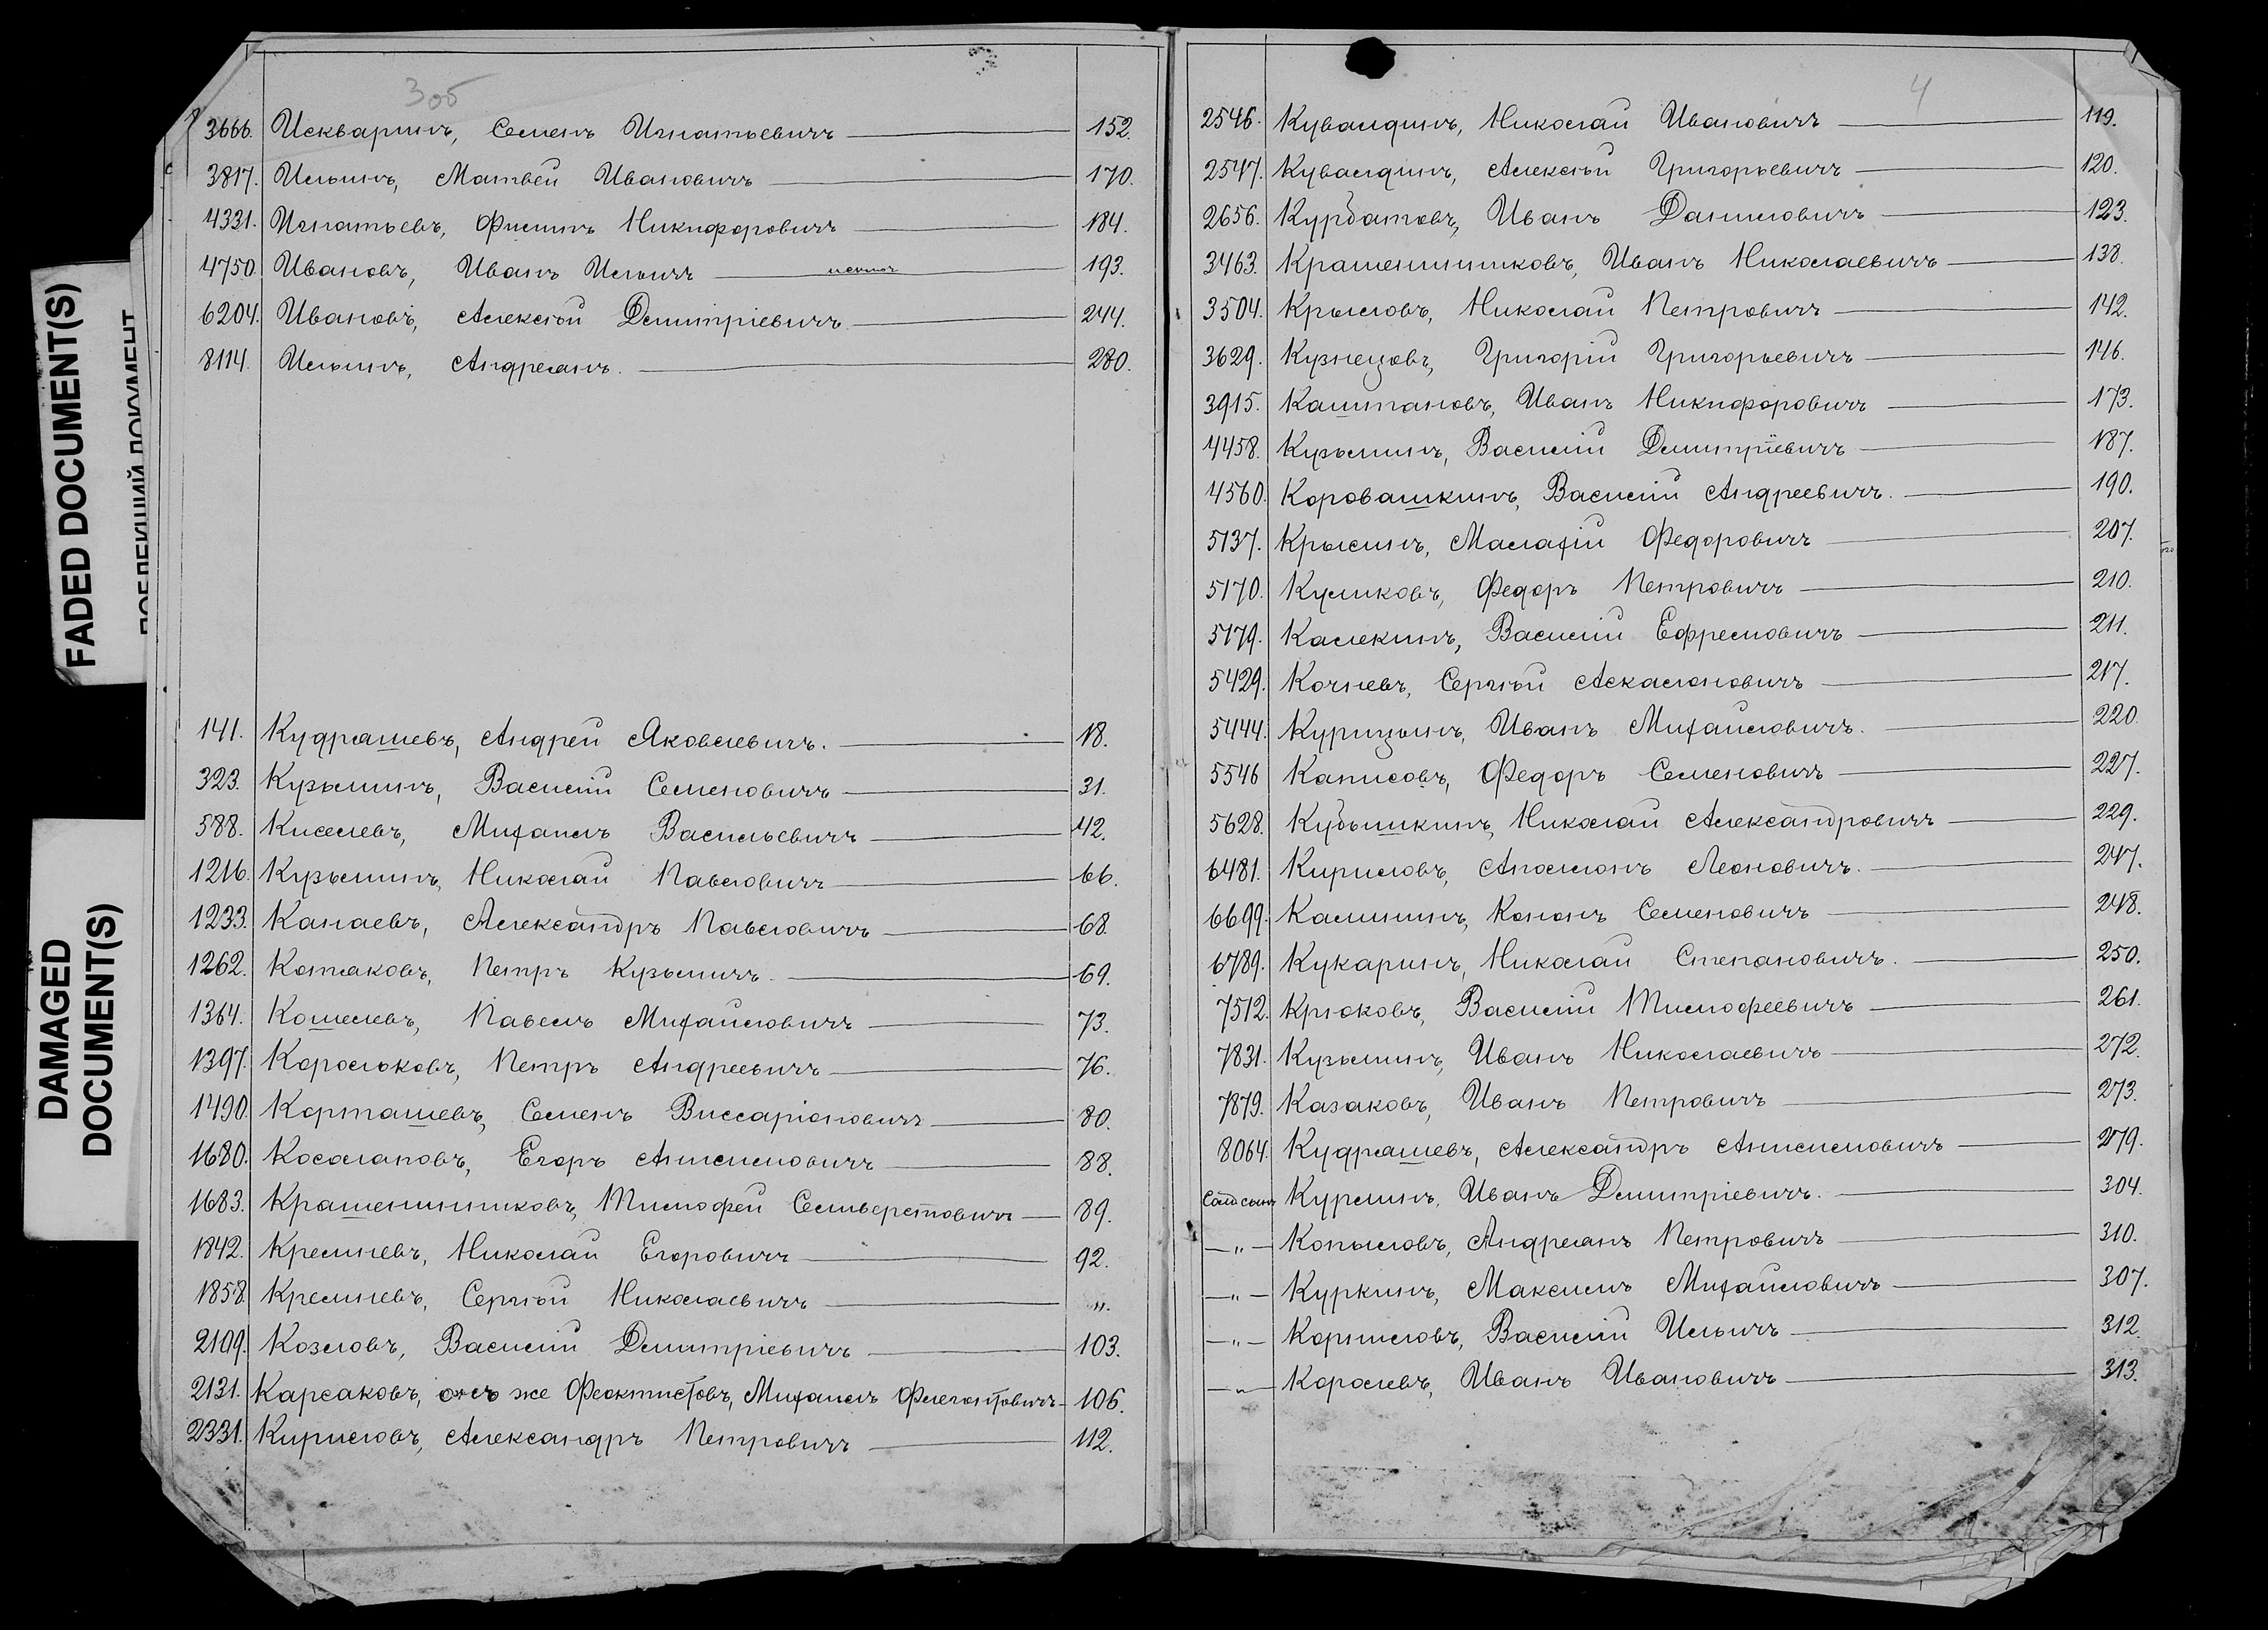 3 об
3666. Искваринъ, Семенъ Игнатьевичъ 152.
3817. Ильинъ, Матвей Ивановичъ 170.
4331. Игнатьевъ, Филипъ Никифоровичъ 184.
4750. Ивановъ, Иванъ Ильичъ 193.
6204. Ивановъ, Алексѣй Дмитріевичъ 244.
8114. Ильинъ, Андреянъ. 280.
141. Кудряшевъ, Андрей Яковлевичъ. 18.
323. Кузьминъ, Василій Семеновичъ 31.
588. Киселевъ, Михаилъ Васильевичъ 42.
1216. Кузьминъ, Николай Павловичъ 66.
1233. Канаевъ, Александръ Павловичъ 68.
1262. Котаковъ, Петръ Кузьмичъ 69.
1364. Кошелевъ, Павелъ Михайловичъ 73.
1397. Корольковъ, Петръ Андреевичъ 76.
1490. Корташевъ, Семенъ Виссаріоновичъ 80.
1680. Косолаповъ, Егоръ Анисимовичъ 88.
1683. Крашенинниковъ, Тимофей Селиверстовичъ 89.
1842. Кремневъ, Николай Егоровичъ 92.
1858. Кремневъ, Сергѣй Николаевичъ „.
2109. Козловъ, Василій Дмитріевичъ 103.
2131. Карсаковъ, онъ же Феоктистовъ, Михаилъ Флегонтовичъ 106.
2331. Кириловъ, Александръ Петровичъ 112.
4
2546. Кувалдинъ, Николай Ивановичъ 119.
2547. Кувалдинъ, Алексѣй Григорьевичъ 120.
2656. Курбатовъ, Иванъ Даниловичъ 123.
3463. Крашенинниковъ, Иванъ Николаевичъ 138.
3504. Крыловъ, Николай Петровичъ 142.
3629. Кузнецовъ, Григорій Григорьевичъ 146.
3915. Каштановъ, Иванъ Никифоровичъ 173.
4458. Кузьминъ, Василій Дмитріевичъ 187.
4560. Коровашкинъ, Василій Андреевичъ. 190.
5137. Крысинъ, Малахій Федоровичъ 207.
5170. Куликовъ, Федоръ Петровичъ 210.
5179. Калекинъ, Василій Ефремовичъ 211.
5429. Кочневъ, Сергѣй Аскалоновичъ 217.
5444. Курицынъ, Иванъ Михайловичъ. 220.
5546 Каписовъ, Федоръ Семеновичъ 227.
5628. Кубышкинъ, Николай Александровичъ 229.
6481. Кириловъ, Аполлонъ Леоновичъ. 247.
6699. Калининъ, Кононъ Семеновичъ 248.
6789. Кукаринъ, Николай Степановичъ. 250.
7512. Крюковъ, Василій Тимофеевичъ 261.
7831. Кузьминъ, Иванъ Николаевичъ 272.
7879. Казаковъ, Иванъ Петровичъ 273.
8064. Кудряшевъ, Александръ Анисимовичъ 279.
Курминъ, Иванъ Дмитріевичъ. 304.
—„— Копыловъ, Андреянъ Петровичъ 310.
—„— Куркинъ, Максимъ Михайловичъ 307.
—„— Корниловъ, Василій Ильичъ 312.
—„— Королевъ, Иванъ Ивановичъ 313.
FADED DOCUMENT(S)
DAMAGED
DOCUMENT(S)